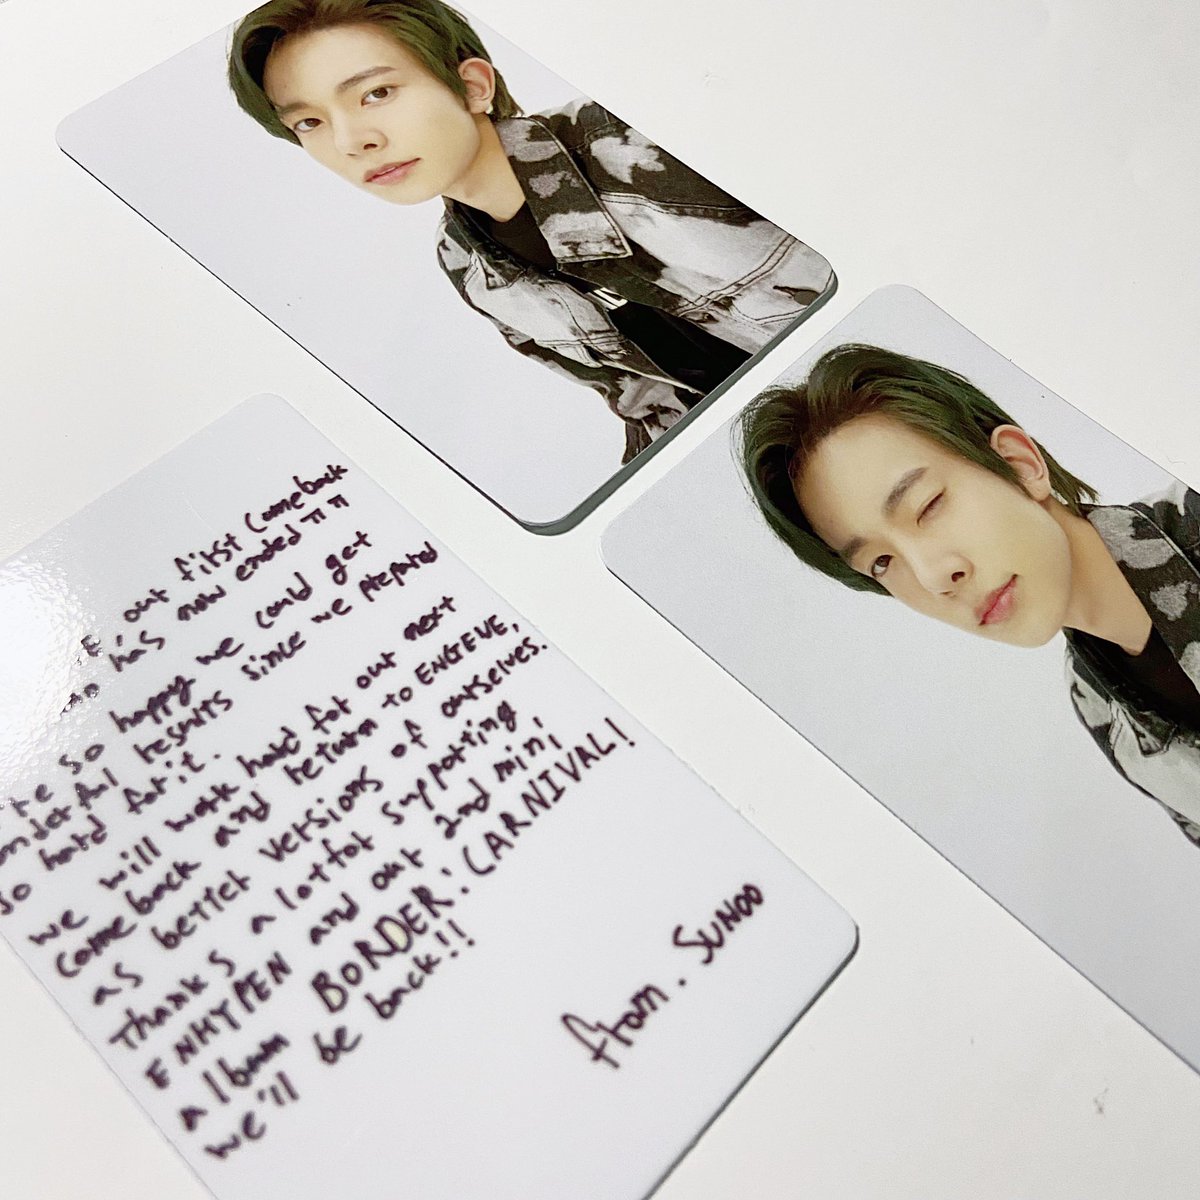 , our first comeback
has now ended ㅠㅠ
so happy we could get
results since we prepared
so hard for it.
we will work hard for our next
comeback and return to ENGENE,
as better versions of ourselves.
Thanks a lot for supporting
ENHYPEN and our 2nd mini
album BORDER : CARNIVAL!
we'll be back!!
from. SUNOO